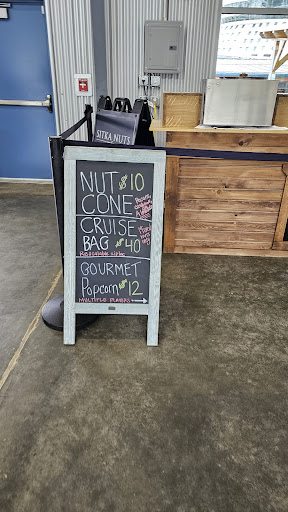 SITKA NUTS
NUT $10
CONE
CRUISE
BAG $40
GOURMET
Popcorn $12
MULTIPLE FLAVORS